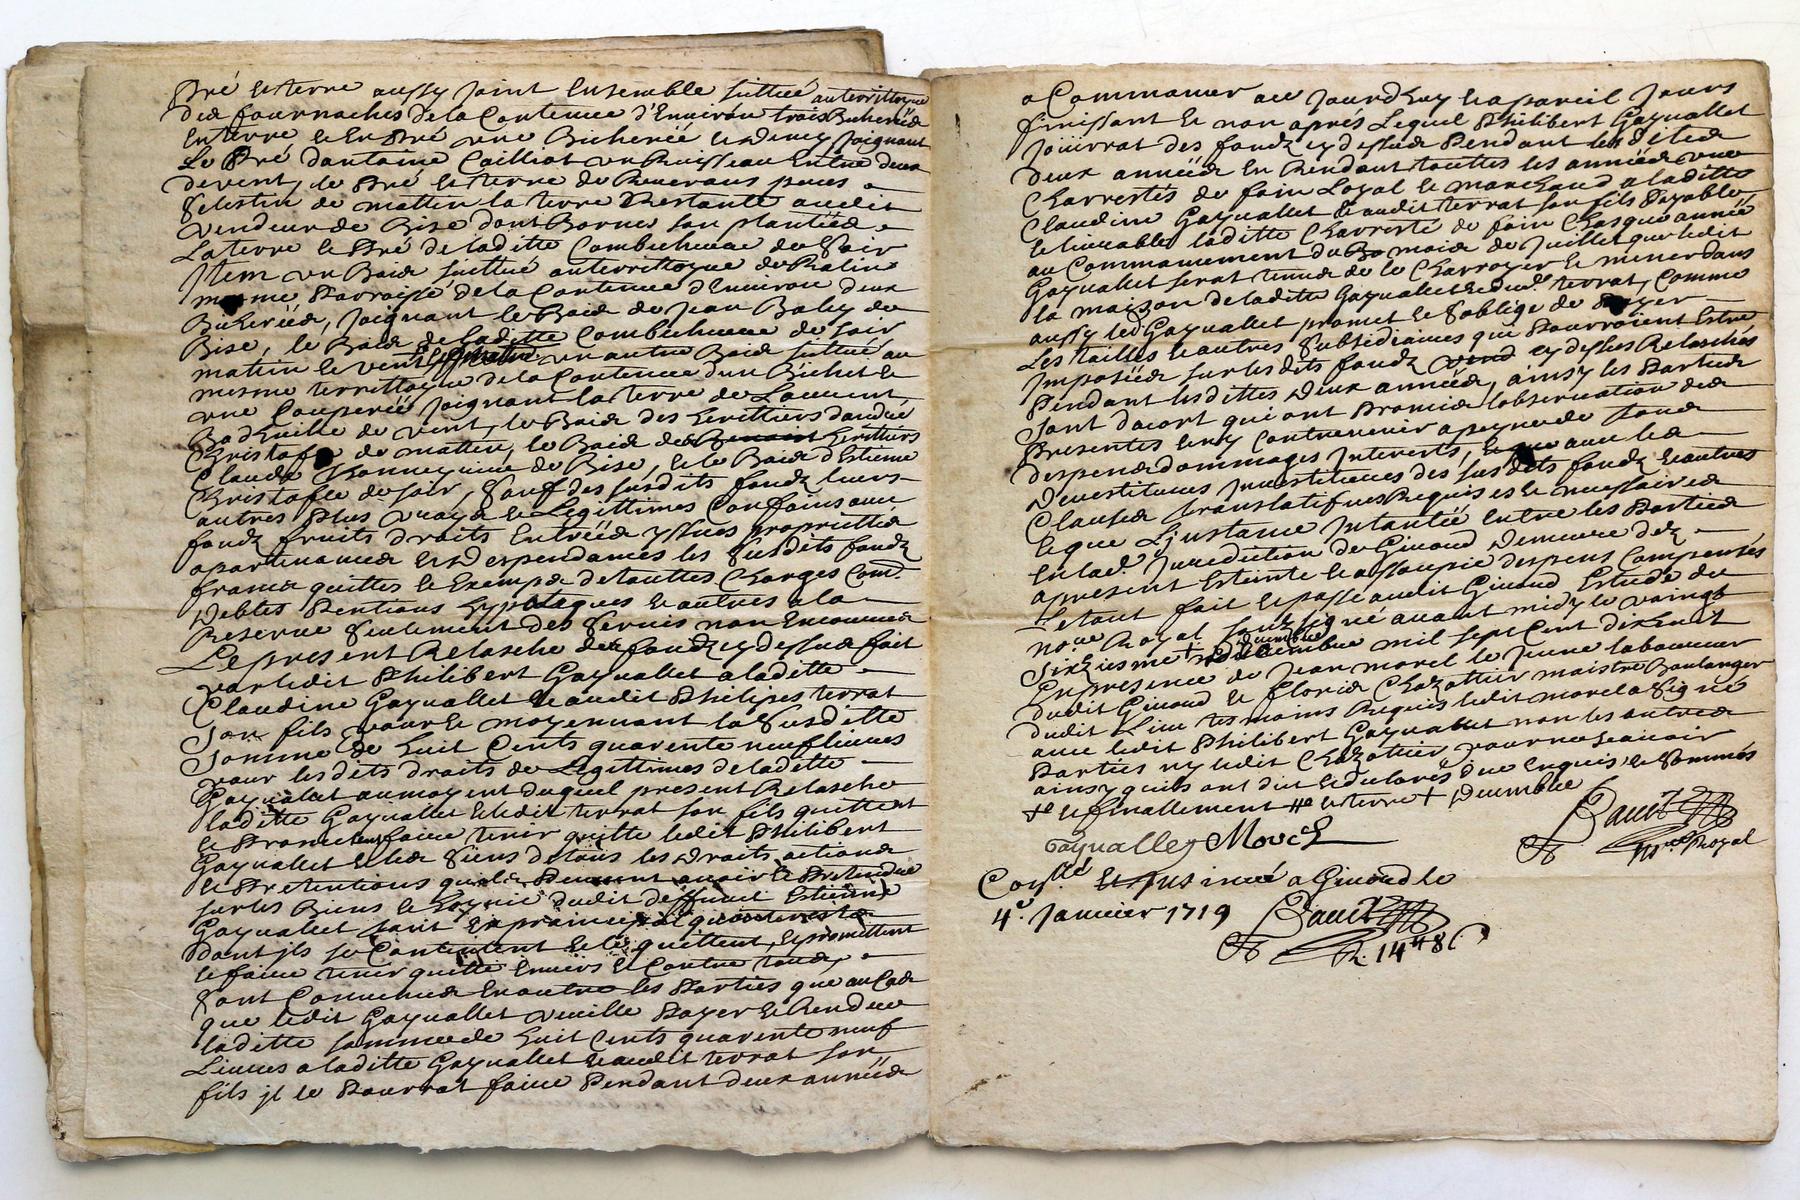 Pré et terre aussy joint Ensemble sittué au territtoyre
des fournaches de la Contenue d'Environ trois Bicherées
En terre et En Pré une Bicherée et demy joignant
Le Pré dantoine Cailliot un Ruisseau Entre deux
de vent, le Pré et terre de Reverans peres
Selestin de mattin la terre Restante audit
vendeur de Bise dont Bornes son plantées
La terre et Pré de laditte Combe de soir
Item un Bois sittué au territtoyre de Ratin
mesme Parroisse de la Contenue d'Environ deux
Bicherées, joignant le Bois de Jean Baly de
Bise, le Bois de laditte de soir
matin et vent un autre Bois sittué au
mesme territtoyre de la Contenue d'un Bichet et
une Couperée joignant la terre de
de vent, le Bois des heritiers dandré
Christofle de mattin, le Bois des heritiers
Claude de Bise, et le Bois d'Estienne
Christofle de soir, sauf des susdits fondz leurs
autres plus vrays et Legittimes Confains avec
fondz fruits droits Entrées yssues proprietés
apartenances et despendances les susdits fondz
francs quittes et Exemps de touttes Charges Com.
Debtes Pentions hypoteques et autres a la
Reserve seulement des servis non Encourus
Le present Relasche des fondz cy dessus fait
par ledit Philibert Gayvallet a laditte
Claudine Gayvallet et audit Philipes terrat
son fils pour et moyennant la susditte
somme de huit Cents quarente neuf livres
pour lesdits droits de Legittimes de laditte
Gayvallet au moyent duquel present Relasche
laditte Gayvallet et ledit terrat son fils quittent
et Promettent faire tenir quitte ledit Philibert
Gayvallet et les siens de tous les droits actions
et Pretentions qu'ils Peuvent avoir et Pretendre
sur les Biens et hoyrie dudit deffunt Estienne
Gayvallet tant En principal qu'interests
dont jls se Contentent et le quittent, et promettent
le faire tenir quitte Envers et Contre tous,
sont Convenues En outre les Parties que au Cas
que ledit Gayvallet veuille Payer et Rendre
laditte somme de huit Cents quarente neuf
Livres a laditte Gayvallet et audit terrat son
fils jl le Pourrat faire Pendant deux années
a Commancer de jourd'huy et a pareil jours
finissant et non aprés Lequel Philibert Gayvallet
jouirrat des fondz cy dessus Pendant lesdites
deux années En Rendant touttes les années une
Charrettés de foin Loyal et marchand a laditte
Claudine Gayvallet et audit terrat son fils Payable
et livrable laditte Charretté de foin Chasque année
au Commancement du mois de Juillet que ledit
Gayvallet serat tenus de le Charroyer et mener dans
la maison de laditte Gayvallet et dud. terrat, Comme
aussy led. Gayvallet promet et s'oblige de Payer
Les tailles et autres subsidiaires qui Pourroient Estre
Imposées sur lesdits fondz cy dessus Relaschés
Pendant lesdittes deux années, ainsy les Parties
sont dacort qui ont Promis l'observation des
Presentes et ny Contrevenir a peyne de tous
despens dommages Interests, avec les
Devestitures Investitures des susdits fondz et autres
Clauses translatifves Requises et necessaires
et que L'justance Intantée Entre les Parties
En lad. Jurediction de Ginod demeure dez
apresent Esteinte et assoupie despens Compensés
Le tout fait et passé audit Ginod Estude du
no.re Royal soussigné avant midy le vaingt
sixziesme + decembre mil sept Cent dixhuit
En presence de Jean morel le jeune laboureur
dudit Ginod et floris Chazottier maistre Boulanger
dudit Lieu tesmoins Requis ledit morel a signé
avec ledit Philibert Gayvallet non les autres
Parties ny ledit Chazottier pour ne sçavoir
ainsy qu'ils ont dit et declarés de ce Enquis et sommés
et finallement et terre + decembre
Gayvallet Morel
Royal
a Ginod le
4.e Janvier 1719
R. 14